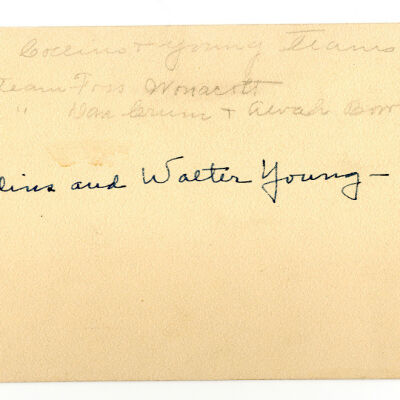 Collins & Young Teams
team Foss Wonacott
" Dan Crum & Alvah Bow
lins and Walter Young —